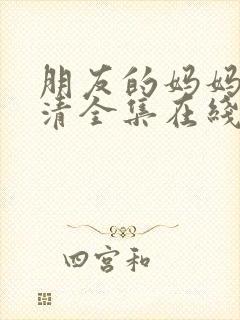 朋友的妈妈
清全集在线
四宫和